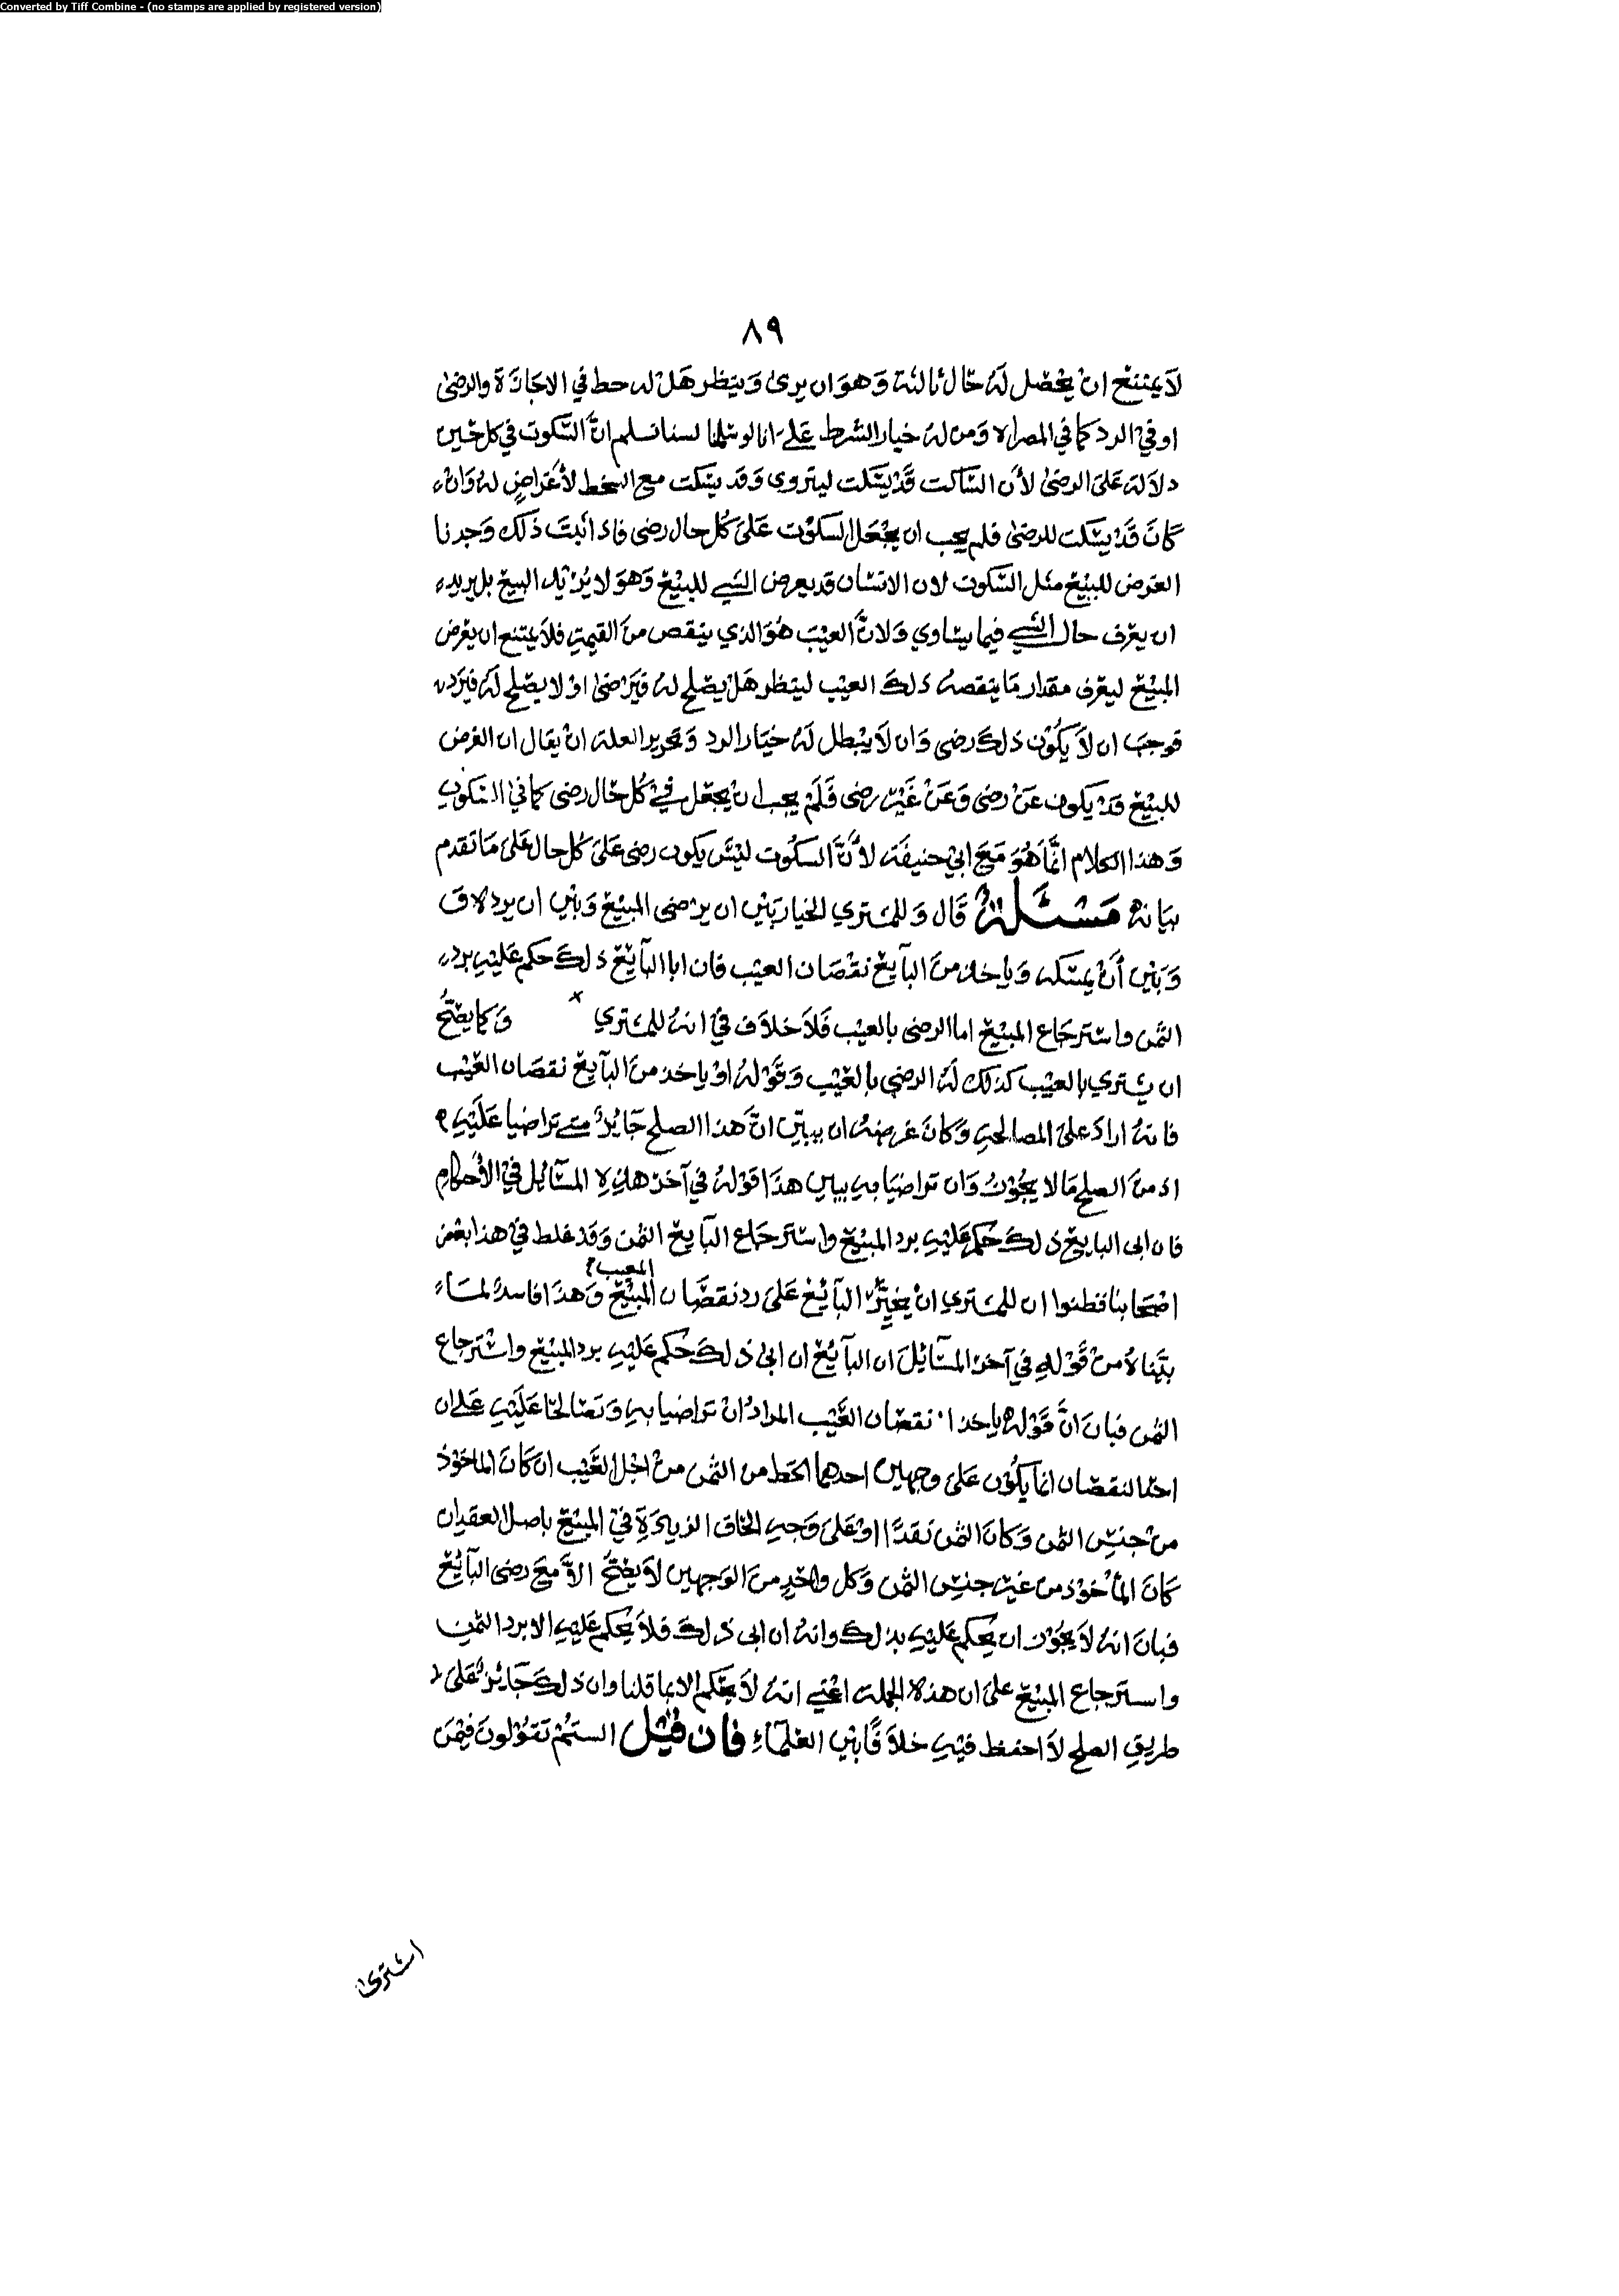 Converted by Tiff Combine - (no stamps are applied by registered version)
٨٩
لا يمتنع ان يحصل له حال ثالثة وهو ان يرى وينظر هل له حط في الاجازة والرضى
او في الرد كما في المصراه ومن له خيار الشرط على انا لو سلمنا لسنا نسلم ان السكوت في كل حين
دلالة على الرضى لأن الساكت قد يسكت ليتروى وقد يسكت مع السخط لأغراض له وان
كان قد يسكت للرضى فلم يجب ان يجعل السكوت على كل حال رضى فاذا ثبت ذلك وجدنا
العرض للبيع مثل السكوت لان الانسان قد يعرض الشي للبيع وهو لا يريد البيع بل يريد
ان يعرف حال الشي فيما يساوي ولان العيب هو الذي ينقص من القيمة فلا يمتنع ان يعرض
المبيع ليعرف مقدار ما ينقصه ذلك العيب لينظر هل يصلح له فيرضى او لا يصلح له فيرده
فوجب ان لا يكون ذلك رضى وان لا يبطل له خيار الرد وتحرير العلة ان يقال ان العرض
للبيع قد يكون عن رضى وعن غير رضى فلم يجب ان يجعل في كل حال رضى كما في السكوت
وهذا الكلام انما هو مع ابي حنيفة لأن السكوت ليس يكون رضى على كل حال على ما تقدم
بيانه مسئلة قال وللمشتري الخيار بين ان يرضى المبيع وبين ان يرد
وبين أن يمسكه وياخذ من البآيع نقصان العيب فان ابا البآيع ذلك حكم عليه برد
الثمن واسترجاع المبيع اما الرضى بالعيب فلا خلاف في انه للمشتري × وكما يصح
ان يشتري بالعيب كذلك له الرضى بالعيب وقوله او ياخذ من البآيع نقصان العيب
فانه اراد على المصالحة وكان غرضه ان يبين ان هذا الصلح جايز متى تراضيا عليه
اذ من الصلح ما لا يجوز وان تراضيا به يبين هذا قوله في آخر هذه المسآئل في الأحكام
فان ابى البايع ذلك حكم عليه برد المبيع واسترجاع البآيع الثمن وقد غلط في هذا بعض
المعيب
اصحابنا فظنوا ان للمشتري ان يجبر البآئع على رد نقصان المبيع وهذا فاسد لما
بيناه من قوله في آخر المسآئل ان البآئع ان ابى ذلك حكم عليه برد المبيع واسترجاع
الثمن فبان ان قوله ياخذ نقصان العيب المراد ان تراضيا به وتصالحا عليه على ان
اخذ النقصان انما يكون على وجهين احدهما الحط من الثمن من اجل العيب ان كان الماخوذ
من جنس الثمن وكان الثمن نقدًا او على وجه الحاق الزيادة في المبيع باصل العقد ان
كان المأخوذ من غير جنس الثمن وكل واحدٍ من الوجهين لا يصح الا مع رضى البآئع
فبان انه لا يجوز ان يحكم عليه بذلك وانه ان ابى ذلك فلا يحكم عليه الا برد الثمن
واسترجاع المبيع على ان هذه الجملة اعني انه لا يحكم الا بما قلنا وان ذلك جآئز على
طريق الصلح لا احفظ فيه خلافًا بين العلمآء فان قيل الستم تقولون فيمن
اشترى